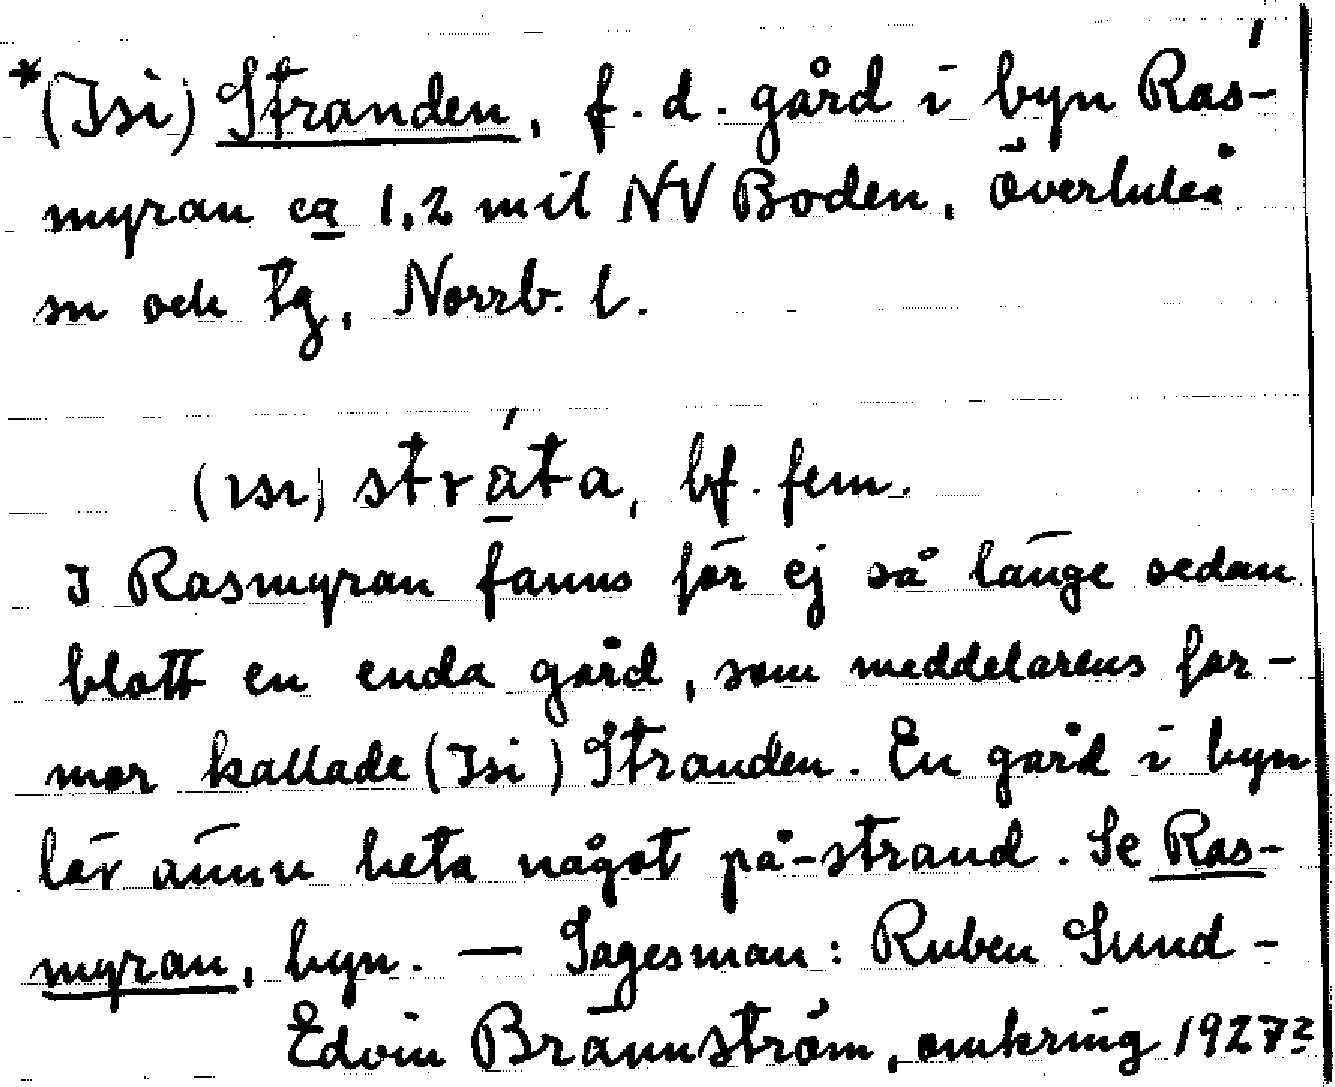 *(Isi) Stranden, f. d. gård i byn Ras-
myran ca 1,2 mil NV Boden, Överluleå
sn och tg, Norrb. l.
(ısı) stráta, bf. fem.
I Rasmyran fanns för ej så länge sedan
blott en enda gård, som meddelarens far-
mor kallade (Isi) Stranden. En gård i byn
lär ännu heta något på -strand. Se Ras-
myran, byn. — Sagesman: Ruben Sund-
Edvin Brännström, omkring 1927?